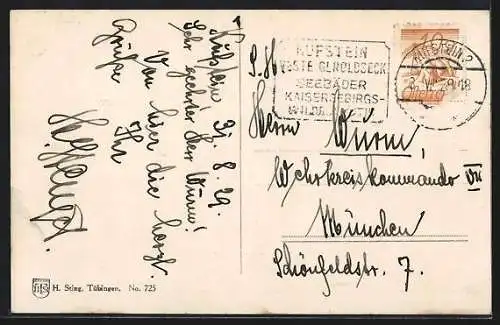 Kufstein 31.8.29.
Sehr geehrter Herr Wurm!
Von hier die herzl.
Grüße Ihr
KUFSTEIN
FESTE GEROLDSECK
SEEBÄDER
KAISERGEBIRGS-
KUFSTEIN 2
10
S. H.
Herrn Wurm,
Wehrkreiskommando VII
München
Schönfeldstr. 7.
H. Sting, Tübingen. No. 725